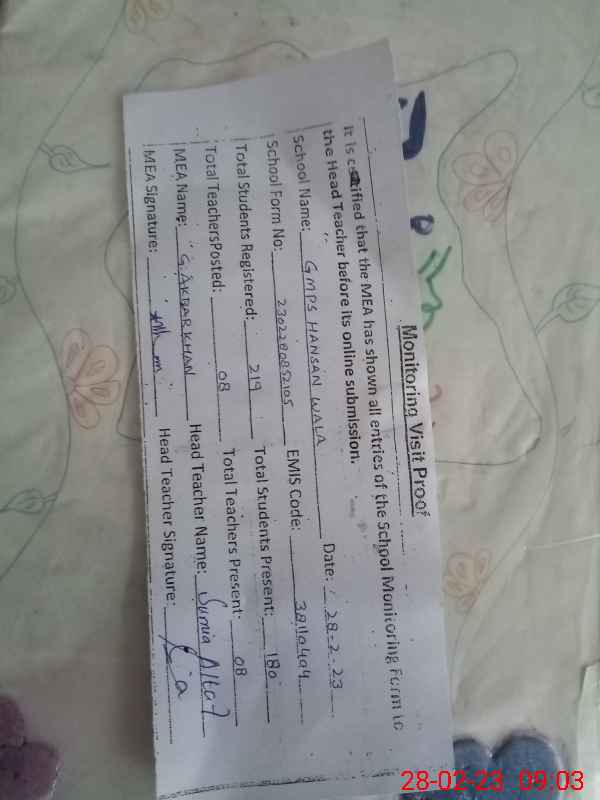 Monitoring Visit Proof
It is certified that the MEA has shown all entries of the School Monitoring Form to
the Head Teacher before its online submission.
School Name: GMPS HANSAN WALA Date: 28-2-23
School Form No: 23022800852105 EMIS Code: 38110404
Total Students Registered: 219 Total Students Present: 180
Total TeachersPosted: 08 Total Teachers Present: 08
MEA Name: G.AKBAR KHAN Head Teacher Name: Sumia Altaf
MEA Signature: Head Teacher Signature:
28-02-23 09:03